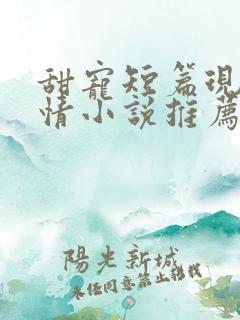 甜寵短篇現
情小說推薦
陽光新城
未經同意禁止轉載